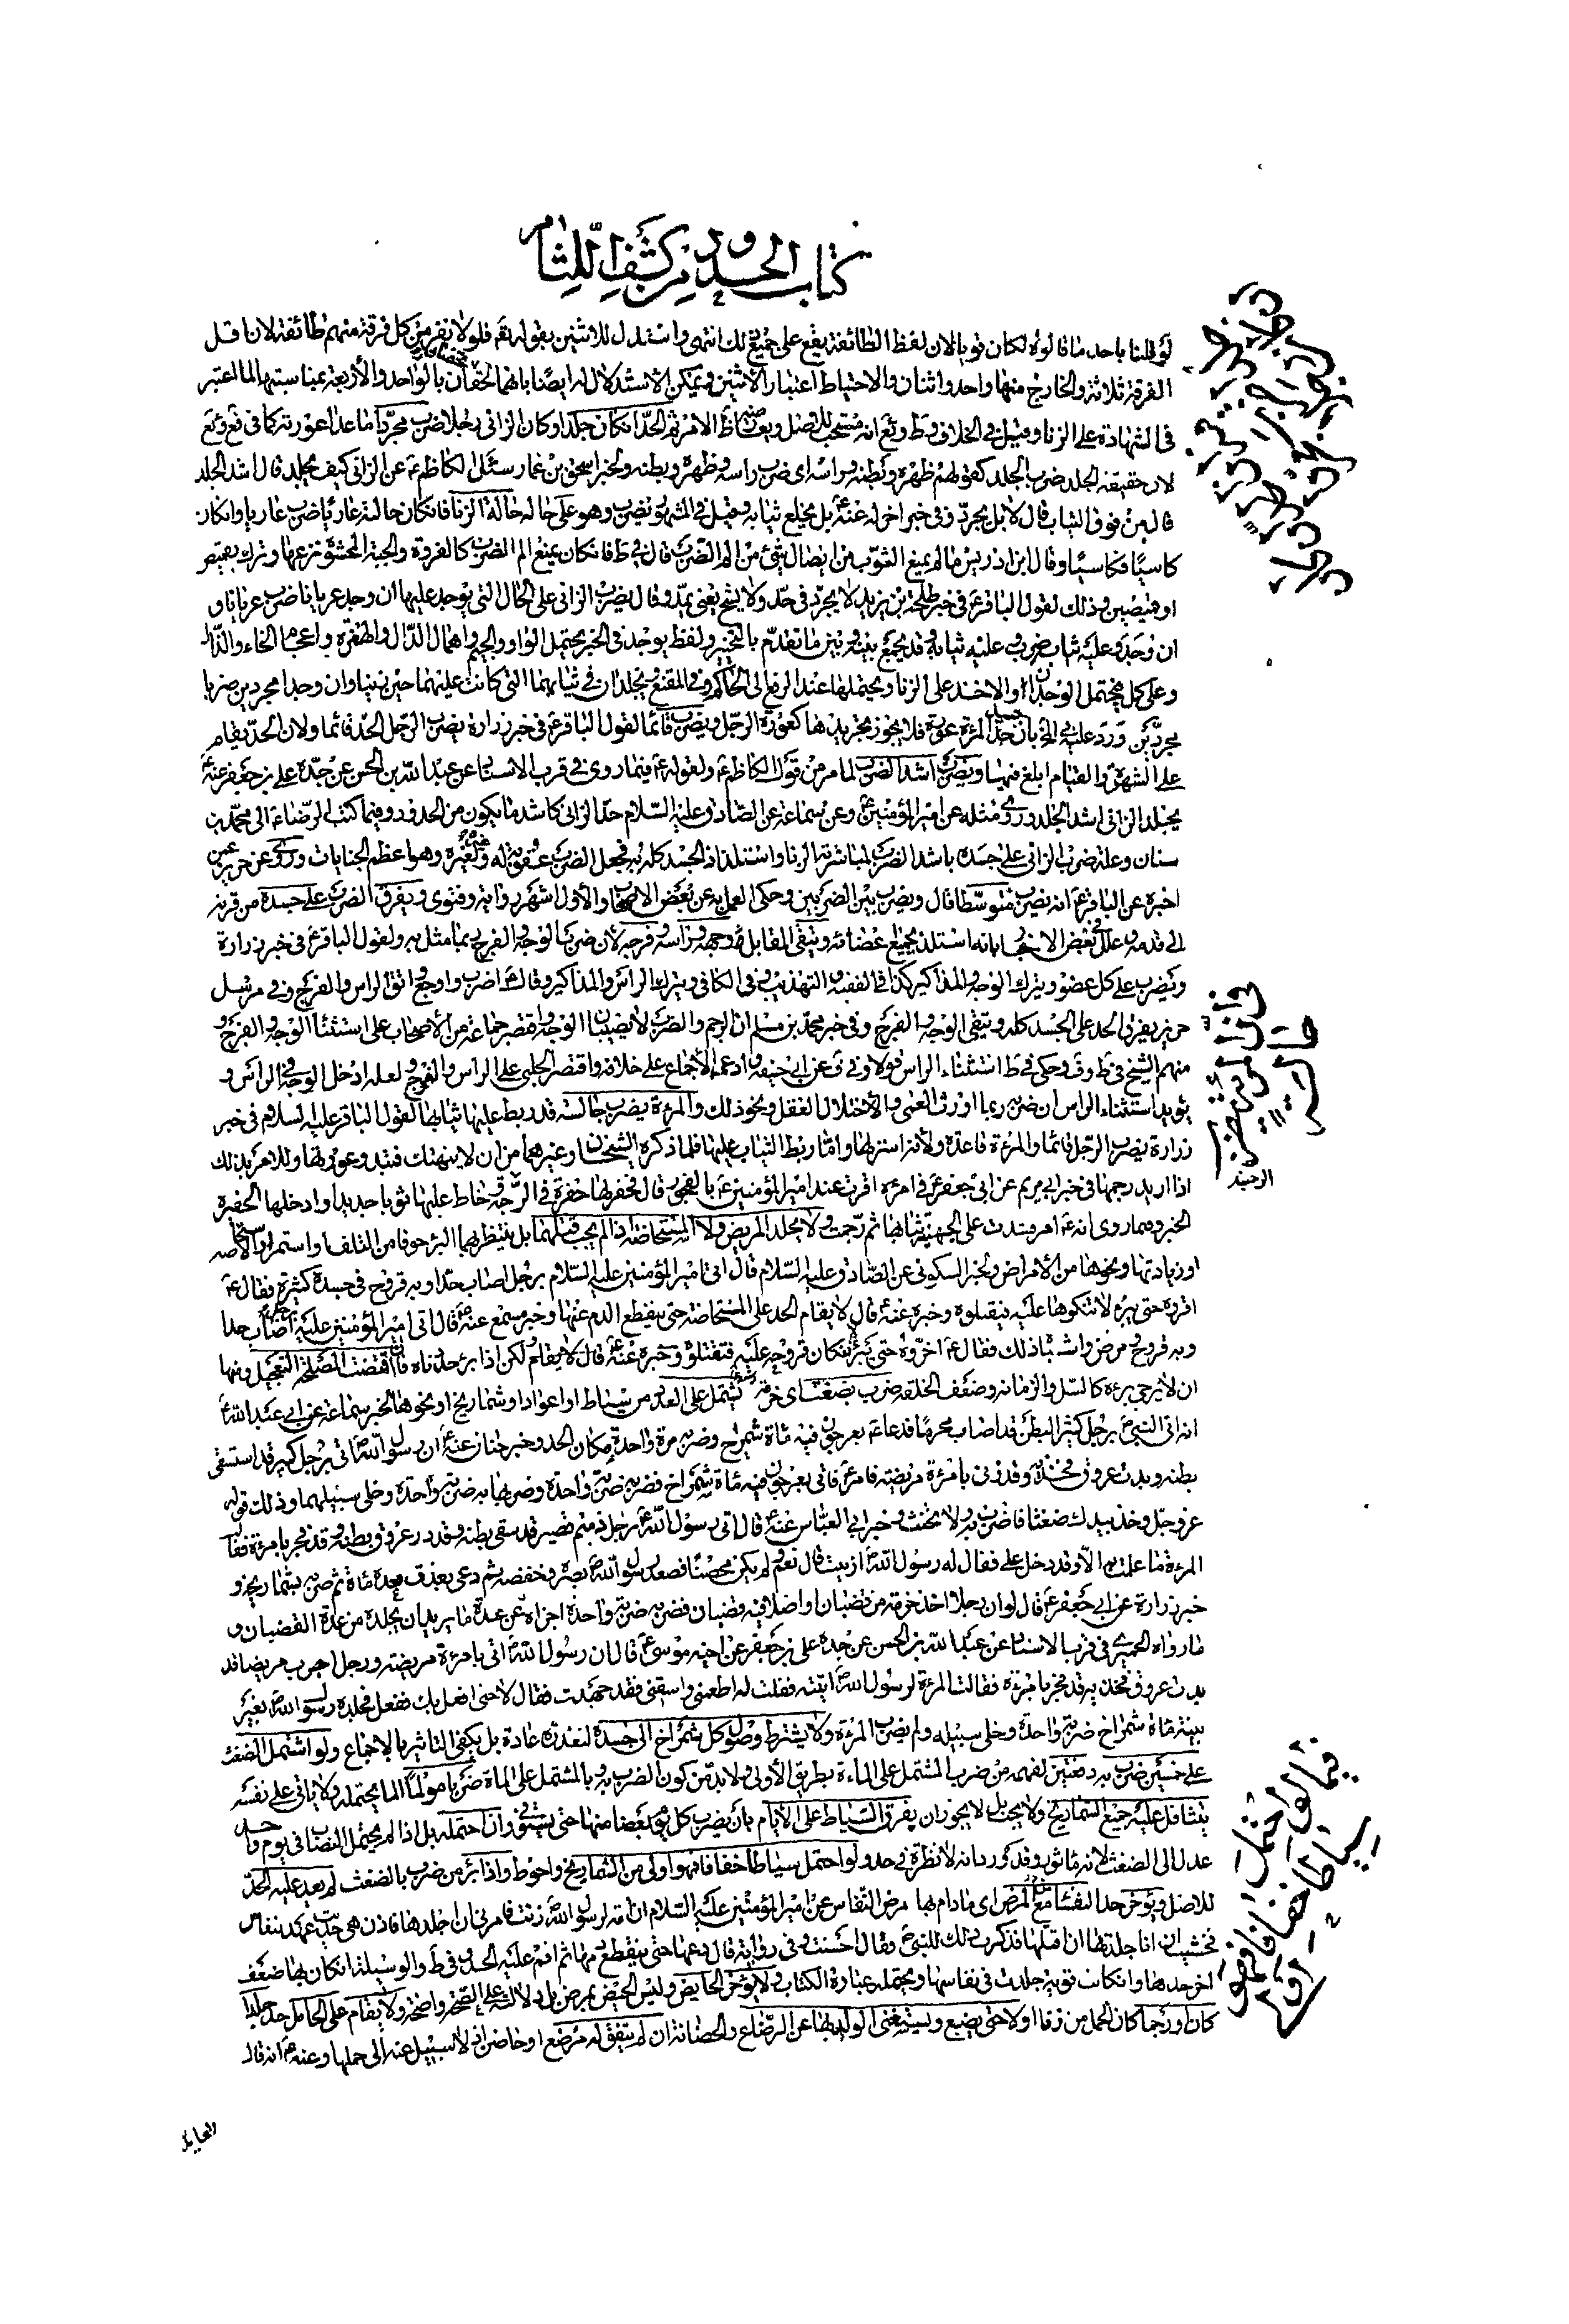 كتاب الحدود من كشف اللثام
لو قلنا باحد ما قالوه لكان قويا لان لفظ الطائفة يقع على جميع ذلك انتهى واستدل للاثنين بقوله تعم فلولا نفر من كل فرقة منهم طائفة لان اقل
الفرقة ثلاثة والخارج منها واحد او اثنان والاحتياط اعتبار الاثنين ويمكن الاستدلال له ايضا بانهما الحقان بالواحد والأربعة بمناسبتها لما اعتبر
في الشهادة على الزنا وقيل في الخلاف وط وئع انه مستحب للاصل ومنع الامر ثم الحد ان كان جلدا وكان الزاني رجلا ضرب مجردا ما عدا عورته كما في فع وئع
لان حقيقة الجلد ضرب الجلد كقولهم ظهره وبطنه وراسه اي ضرب راسه وظهره وبطنه ولخبر اسحق بن عمار سئل الكاظم ع عن الزاني كيف يجلد قال اشد الجلد
قال من فوق الثياب قال لا بل يجرد وفي خبر اخر له عنه ع بل يخلع ثيابه وقيل في المشهور يضرب وهو على حاله حالة الزنا فان كان حالته عاريا ضرب عاريا وان كان
كاسيا فكاسيا وقال ابن ادريس ما لم يمنع الثوب من ايصال شئ من الم الضرب قال في ط فان كان يمنع الم الضرب كالفروة والجبة المحشوة نزعها وترك بقميص
او قميصين وذلك لقول الباقر ع في خبر طلحة بن يزيد لا يجرد في حد ولا يشبح يعني يمد وقال يضرب الزاني على الحال التي يوجد عليها ان وجد عريانا ضرب عريانا و
ان وجد وعليه ثياب ضرب وعليه ثيابه وقد يجمع بينه وبين ما تقدم بالتخيير ولفظ يوجد في الخبر يحتمل الواو والجيم واهمال الدال والهمزة واعجام الخاء والذال
وعلى كل يحتمل الوجدان او الاخذ على الزنا ويحتملها عند الرفع الى الحاكم وفي المقنع ويجلدان في ثيابهما التي كانت عليهما حين زنيا وان وجدا مجردين ضربا
مجردين ورد عليه في المخ بان جسد المرئة عورة فلا يجوز تجريدها كعورة الرجل ويضرب قائما لقول الباقر ع في خبر زرارة يضرب الرجل الحد قائما ولان الحد يقام
على الشهرة والقيام ابلغ فيها ويضرب اشد الضرب لما مر من قول الكاظم ع ولقوله ع فيما روى في قرب الاسناد عن عبد الله بن الحسن عن جده علي بن جعفر عنه ع
يجلد الزاني اشد الجلد وروى مثله عن امير المؤمنين ع وعن سماعة عن الصادق عليه السلام حد الزاني كاشد ما يكون من الحدود وفيما كتب الرضا ع الى محمد بن
سنان وعلة ضرب الزاني على جسده باشد الضرب لمباشرته الزنا واستلذاذ الجسد كله به فجعل الضرب عقوبة له وعبرة لغيره وهو اعظم الجنايات وروى عن حريز عمن
اخبره عن الباقر ع انه يضرب متوسطا قال ويضرب بين الضربين وحكى العمل به عن بعض الاصحاب والأول اشهر رواية وفتوى ويفرق الضرب على جسده من قرنه
الى قدمه وعلل في بعض الاخبار بانه استلذ بجميع اعضائه ويتقى المقاتل ووجهه وراسه وفرجه لان ضرب الوجه والفرج ربما مثل به ولقول الباقر ع في خبر زرارة
ويضرب على كل عضو ويترك الوجه والمذاكير كذا في الفقيه والتهذيب وفي الكافي ويترك الراس والمذاكير وقال ع اضرب واوجع واتق الراس والفرج وفي مرسل
حريز يفرق الحد على الجسد كله ويتقى الوجه والفرج وفي خبر محمد بن مسلم ان الرجم والضرب لا يصيبان الوجه واقتصر جماعة من الأصحاب على استثناء الوجه والفرج و
منهم الشيخ في ط وف وحكى في ط استثناء الراس قولا وفي ف عن ابي حنيفة وادعى الاجماع على خلافه واقتصر الحلبي على الراس والفرج ولعله ادخل الوجه في الراس و
يؤيد استثناء الراس ان ضربه ربما اورث العمى والاختلال العقل ونحو ذلك والمرئة يضرب جالسة قد ربط عليها ثيابها لقول الباقر عليه السلام في خبر
زرارة يضرب الرجل قائما والمرءة قاعدة ولأنه استر لها واما ربط الثياب عليها فلما ذكره الشيخان وغيرهما من ان لا ينهتك فتبدو عورتها وللامر بذلك
اذا اريد رجمها في خبر ابي مريم عن ابي جعفر ع في امرءة اقرت عند امير المؤمنين ع بالفجور قال فحفر لها حفرة في الرحبة وخاط عليها ثوبا جديدا وادخلها الحفيرة
الخبر ومما روى انه ع امر فشدت على الجهنية ثيابها ثم رجمت ولا يجلد المريض ولا المستحاضة اذا لم يجب قتلهما بل ينتظر بهما البرء خوفا من التلف او استمرار الاستحاضه
او زيادتها ونحوها من الأمراض ولخبر السكوني عن الصادق عليه السلام قال اتى امير المؤمنين عليه السلام برجل اصاب حدا وبه قروح في جسده كثيرة فقال ع
اقروه حتى يبرء لا تنكؤها عليه فتقتلوه وخبره عنه ع قال لا يقام الحد على المستحاضة حتى ينقطع الدم عنها وخبر مسمع عنه ع قال اتى امير المؤمنين عليه ع برجل اصاب حدا
وبه قروح مرض واشباه ذلك فقال ع اخروه حتى تبرء لا تنكأ قروحه عليه فتقتلوه وخبره عنه ع قال لا يقام لكن اذا برء حددناه فان اقتضت المصلحة التعجيل ومنها
ان لا يرجى برءه كالسل والزمانة وضعف الخلقة ضرب بضغث اي حزمة يشتمل على العدد من سياط او اعواد او شماريخ او نحوها لخبر سماعة عن ابي عبد الله ع
انه اتى النبي ص برجل كبير البطن قد اصاب محرما فدعا ع بعرجون فيه مائة شمراخ وضربه مرة واحدة مكان الحد وخبر حنان عنه ع ان رسول الله ص اتى برجل كبير قد استسقى
بطنه وبدت عروق فخذيه وقد زنى بامرئة مريضة فامر ع فاتى بعرجون فيه مائة شمراخ فضربه ضربة واحدة وضربها به ضربة واحدة وخلى سبيلهما وذلك قوله
عز وجل وخذ بيدك ضغثا فاضرب به ولا تحنث وخبر ابي العباس عنه ع قال اتى رسول الله ص برجل ذميم قصير قد سقى بطنه وقد در عروق بطنه وقد فجر بامرئة فقالت
المرئة ما علمت به الا وقد دخل علي فقال له رسول الله ص ازنيت قال نعم ولم يكن محصنا فصعد رسول الله ص بصره وخفضه ثم دعى بعذق فعده مائة ثم ضربه بشماريخه و
خبر زرارة عن ابي جعفر ع قال لو ان رجلا اخذ حزمة من قضبان او اصلا فيه قضبان فضربه ضربة واحدة اجزاه عن عدة ما يريد ان يجلده من عدة القضبان و
ما رواه الحميري في قرب الاسناد عن عبد الله بن الحسن عن جده علي بن جعفر عن اخيه موسى ع قال ان رسول الله ص اتى بامرئة مريضة ورجل اجرب مريض قد
بدت عروق فخذيه قد فجر بامرئة فقالت المرئة لرسول الله ص اتيته فقلت له اطعمني واسقني فقد جهدت فقال لا حتى افعل بك ففعل فجلده رسول الله ص بغير
بينة مائة شمراخ ضربة واحدة وخلى سبيله ولم يضرب المرئة ولا يشترط وصول كل شمراخ الى جسده لتعذره عادة بل يكفي التاثير بالاجماع ولو اشتمل الضغث
على خمسين ضرب به دفعتين لفهمه من ضرب المشتمل على المائة بطريق الأولى ولا بد من كون الضرب به وبالمشتمل على المائة ضربا مولما الما يحتمله ولا ياتى على نفسه
يتثاقل عليه جميع الشماريخ ولا يجب بل لا يجوز ان يفرق السياط على الأيام بان يضرب كل يوم بعضا منها حتى يستوفى وان احتمله بل اذا لم يحتمل النصاب في يوم واحد
عدل الى الضغث لانه ماثور وقد ورد انه لا نظرة في حد ولو احتمل سياطا خفافا فهو اولى من الشماريخ واحوط واذا برء من ضرب بالضغث لم يعد عليه الحد
للاصل ويؤخر حد النفساء مع المرض اي مادام بها مرض النفاس عن امير المؤمنين عليه السلام ان امة لرسول الله ص زنت فامرني ان اجلدها فاذن هي حديث عهد بنفاس
فخشيت ان انا جلدتها ان اقتلها فذكرت ذلك للنبي ص فقال احسنت وفي رواية قال دعها حتى ينقطع دمها ثم اقم عليه الحد وفي ط والوسيلة ان كان بها ضعف
اخر حدها وان كانت قوية جلدت في نفاسها ويحتمله عبارة الكتاب ولا يؤخر الحايض وليس الحيض بمرض بل دلالته على الصحة واضحة ولا يقام على الحامل حد جلدا
كان او رجما كان الحمل من زنا او لا حتى يضع ويستغنى الولد بها عن الرضاع والحضانة ان لم يتفق له مرضع او حاضن اذ لا سبيل عنه الى حملها وعنه ص انه قال
الوحيد
فيما لو احتمل
سياطا خفافا فهو
اولى